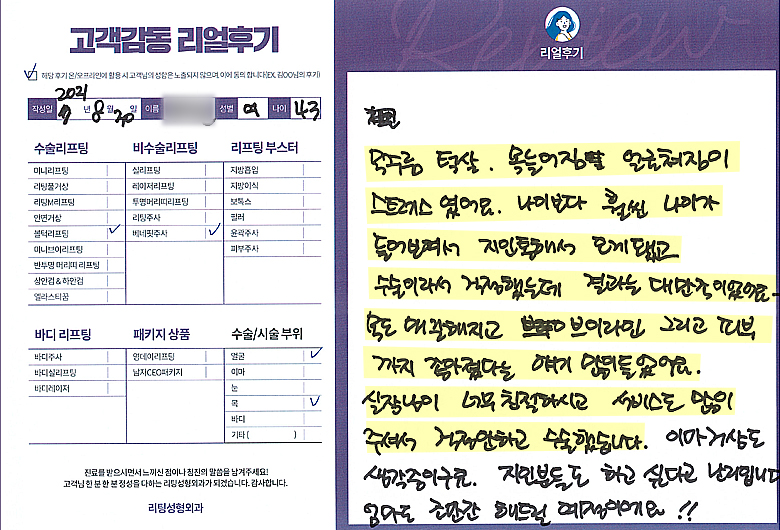 고객감동 리얼후기
해당 후기 온/오프라인에 활용 시 고객님의 성함은 노출되지 않으며, 이에 동의 합니다(EX. 김OO님의 후기)
2021
작성일 년 8 월 20 일 이름 성별 여 나이 43
수술리프팅
미니리프팅
리팅풀거상
리팅M리프팅
안면거상
불턱리프팅
미니브이리프팅
반투명 머리띠 리프팅
상안검 & 하안검
엘라스티꿈
비수술리프팅
실리프팅
레이저리프팅
투명머리띠리프팅
리팅주사
베네핏주사
리프팅 부스터
지방흡입
지방이식
보톡스
필러
윤곽주사
피부주사
바디 리프팅
바디주사
바디실리프팅
바디레이저
패키지 상품
엄데이리프팅
남자CEO패키지
수술/시술 부위
얼굴
이마
눈
목
바디
기타 ( )
진료를 받으시면서 느끼신 점이나 칭찬의 말씀을 남겨주세요!
고객님 한 분 한 분 정성을 다하는 리팅성형외과가 되겠습니다. 감사합니다.
리팅성형외과
Review
리얼후기
목주름 턱살. 목늘어짐 얼굴쳐짐이
스트레스 였어요. 나이보다 훨씬 나이가
들어보여서 지인통해서 오게됐고
수술이라서 걱정했는데 결과는 대만족이였어요-
목도 매끈해지고 브이라인 그리고 피부
까지 좋아졌다는 얘기 많이들었어요.
실장님이 너무 친절하시고 서비스도 많이
주셔서 걱정안하고 수술했습니다. 이마거상도
생각중이구요. 지인분들도 하고 싶다고 난리입니다
엄마도 조만간 해드릴 예정이에요 !!